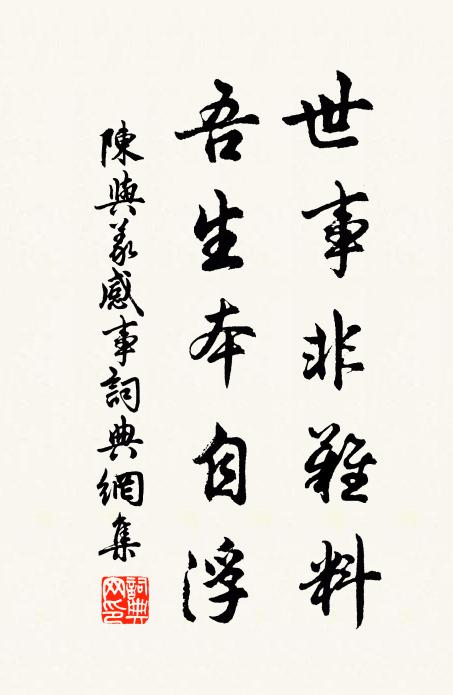 世事非難料
吾生本自浮
陳與義感事詞典網集
詞典網印